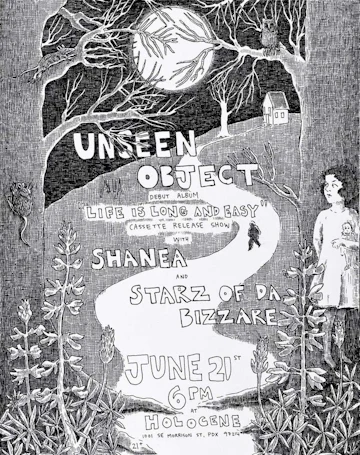 UNSEEN
OBJECT
DEBUT ALBUM
"LIFE IS LONG AND EASY"
CASSETTE RELEASE SHOW
WITH
SHANEA
AND
STARZ OF DA
BIZZARE
JUNE 21ST
6 PM
AT
HOLOCENE
1001 SE MORRISON ST, PDX 97214
21+